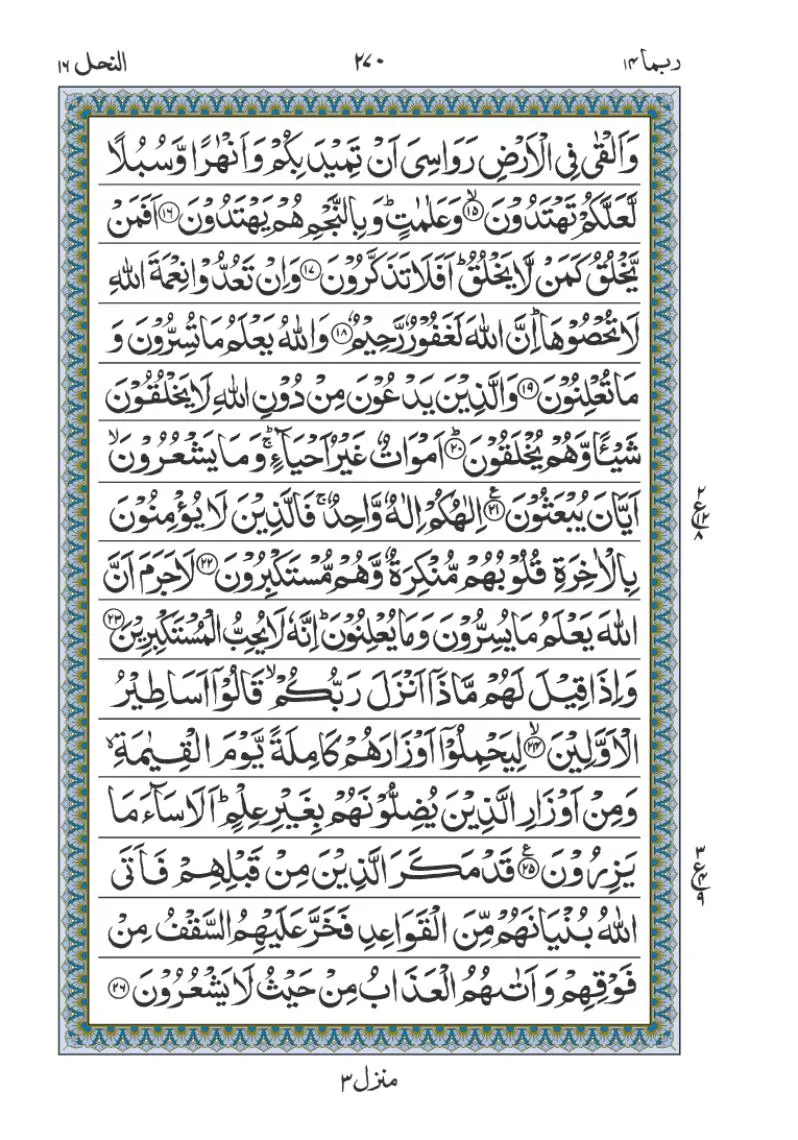 ربما ١٤
٢٧٠
النحل ١٦
وَاَلْقٰی فِی الْاَرْضِ رَوَاسِیَ اَنْ تَمِیْدَ بِكُمْ وَاَنْهٰرًا وَّسُبُلًا
لَّعَلَّكُمْ تَهْتَدُوْنَ ۙ﴿۱۵﴾ وَعَلٰمٰتٍ ؕ وَبِالنَّجْمِ هُمْ یَهْتَدُوْنَ ﴿۱۶﴾ اَفَمَنْ
یَّخْلُقُ كَمَنْ لَّا یَخْلُقُ ؕ اَفَلَا تَذَكَّرُوْنَ ﴿۱۷﴾ وَاِنْ تَعُدُّوْا نِعْمَةَ اللهِ
لَا تُحْصُوْهَا ؕ اِنَّ اللهَ لَغَفُوْرٌ رَّحِیْمٌ ﴿۱۸﴾ وَاللهُ یَعْلَمُ مَا تُسِرُّوْنَ وَ
مَا تُعْلِنُوْنَ ﴿۱۹﴾ وَالَّذِیْنَ یَدْعُوْنَ مِنْ دُوْنِ اللهِ لَا یَخْلُقُوْنَ
شَیْـًٔا وَّهُمْ یُخْلَقُوْنَ ؕ﴿۲۰﴾ اَمْوَاتٌ غَیْرُ اَحْیَآءٍ ۚ وَمَا یَشْعُرُوْنَ ۙ
اَیَّانَ یُبْعَثُوْنَ ﴿۲۱﴾ ع اِلٰهُكُمْ اِلٰهٌ وَّاحِدٌ ۚ فَالَّذِیْنَ لَا یُؤْمِنُوْنَ
٢
ع ١٢
٨
بِالْاٰخِرَةِ قُلُوْبُهُمْ مُّنْكِرَةٌ وَّهُمْ مُّسْتَكْبِرُوْنَ ﴿۲۲﴾ لَا جَرَمَ اَنَّ
اللهَ یَعْلَمُ مَا یُسِرُّوْنَ وَمَا یُعْلِنُوْنَ ؕ اِنَّهٗ لَا یُحِبُّ الْمُسْتَكْبِرِیْنَ ﴿۲۳﴾
وَاِذَا قِیْلَ لَهُمْ مَّاذَاۤ اَنْزَلَ رَبُّكُمْ ۙ قَالُوْۤا اَسَاطِیْرُ
الْاَوَّلِیْنَ ۙ﴿۲۴﴾ لِیَحْمِلُوْۤا اَوْزَارَهُمْ كَامِلَةً یَّوْمَ الْقِیٰمَةِ ۙ
وَمِنْ اَوْزَارِ الَّذِیْنَ یُضِلُّوْنَهُمْ بِغَیْرِ عِلْمٍ ؕ اَلَا سَآءَ مَا
یَزِرُوْنَ ﴿۲۵﴾ ع قَدْ مَكَرَ الَّذِیْنَ مِنْ قَبْلِهِمْ فَاَتَی
٣
ع ٤
٩
اللهُ بُنْیَانَهُمْ مِّنَ الْقَوَاعِدِ فَخَرَّ عَلَیْهِمُ السَّقْفُ مِنْ
فَوْقِهِمْ وَاَتٰىهُمُ الْعَذَابُ مِنْ حَیْثُ لَا یَشْعُرُوْنَ ﴿۲۶﴾
منزل ٣